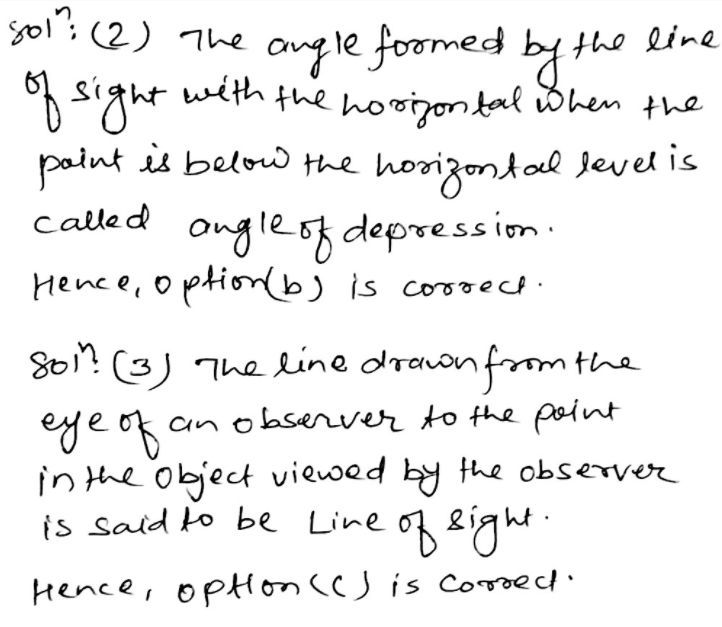 Solⁿ: (2) The angle formed by the line
of sight with the horizontal when the
point is below the horizontal level is
called angle of depression.
Hence, option(b) is correct.
Solⁿ: (3) The line drawn from the
eye of an observer to the point
in the object viewed by the observer
is said to be Line of sight.
Hence, option (c) is correct.